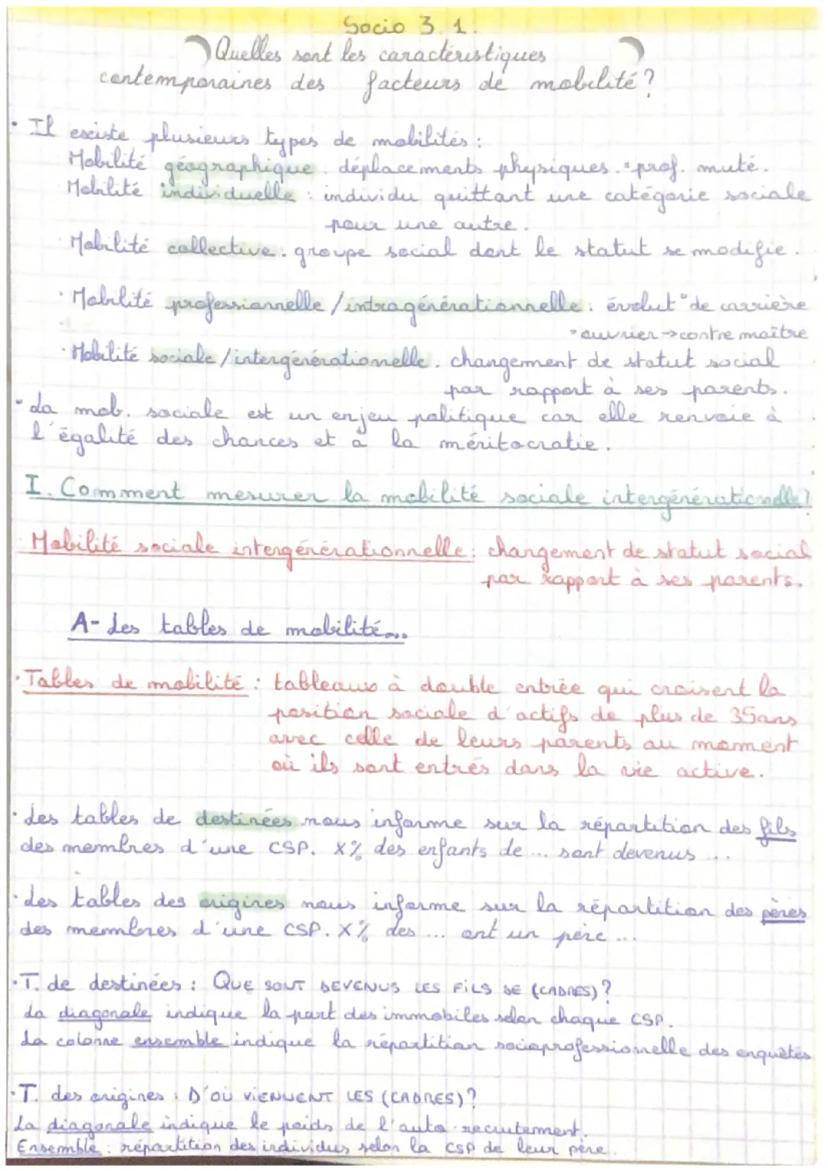 Socio 3.1.
Quelles sont les caractéristiques
contemporaines des facteurs de mobilité ?
• Il existe plusieurs types de mobilités :
Mobilité géographique : déplacements physiques. "prof. muté.
Mobilité individuelle : individu quittant une catégorie sociale
pour une autre.
Mobilité collective : groupe social dont le statut se modifie.
• Mobilité professionnelle / intragénérationnelle : évolut° de carrière
"ouvrier → contre maître
• Mobilité sociale / intergénérationelle : changement de statut social
par rapport à ses parents.
• La mob. sociale est un enjeu politique car elle renvoie à
l'égalité des chances et à la méritocratie.
I. Comment mesurer la mobilité sociale intergénérationnelle ?
• Mobilité sociale intergénérationnelle : changement de statut social
par rapport à ses parents.
A- Les tables de mobilité...
• Tables de mobilité : tableaux à double entrée qui croisent la
position sociale d'actifs de plus de 35ans
avec celle de leurs parents au moment
où ils sont entrés dans la vie active.
• Les tables de destinées nous informe sur la répartition des fils
des membres d'une CSP. X% des enfants de ... sont devenus ...
• Les tables des origines nous informe sur la répartition des pères
des membres d'une CSP. X% des ... ont un père ...
• T. de destinées : QUE SONT DEVENUS LES FILS DE (CADRES) ?
La diagonale indique la part des immobiles selon chaque CSP.
La colonne ensemble indique la répartition socioprofessionnelle des enquêtés
• T. des origines : D'OÙ VIENNENT LES (CADRES) ?
La diagonale indique le poids de l'auto-recrutement.
Ensemble : répartition des individus selon la CSP de leur père.